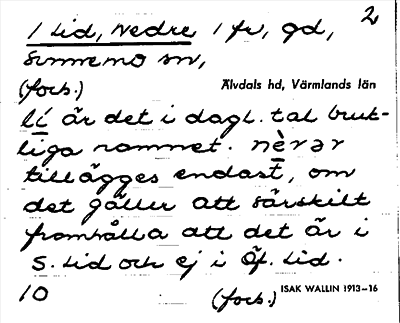 2
1 Lid, Nedre 1 fr, gd,
Sunnemo sn,
(forts.)
Älvdals hd, Värmlands län
lí är det i dagl. tal bruk-
liga namnet. nèrər
tillägges endast, om
det gäller att särskilt
framhålla att det är i
S. Lid och ej i Öf. Lid.
10
(forts.) ISAK WALLIN 1913–16